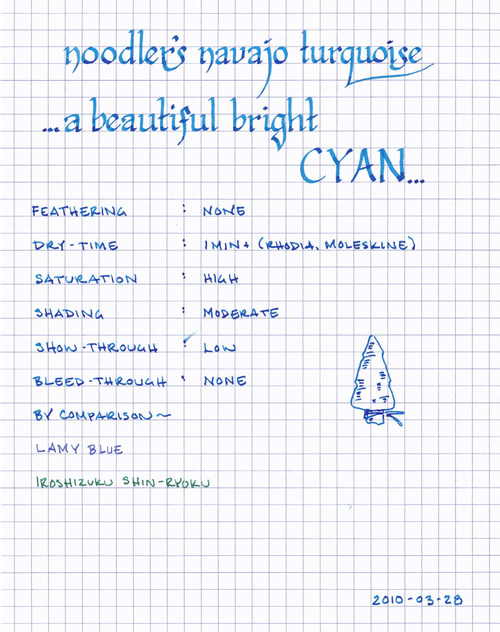 noodler's navajo turquoise
...a beautiful bright
CYAN...
FEATHERING : NONE
DRY-TIME : 1MIN+ (RHODIA, MOLESKINE)
SATURATION : HIGH
SHADING : MODERATE
SHOW-THROUGH : LOW
BLEED-THROUGH : NONE
BY COMPARISON~
LAMY BLUE
IROSHIZUKU SHIN-RYOKU
2010-03-28